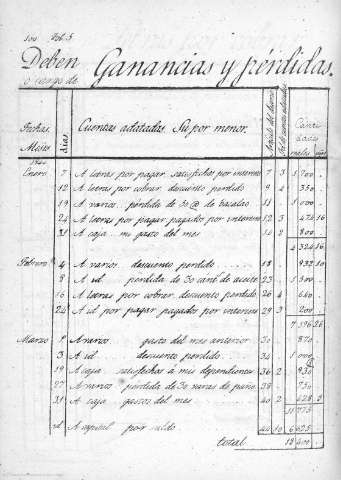 Deben Ganancias y pérdidas.
o cargo de
Fechas. Meses días. Cuentas adatadas. Su por menor.
Enero 7 A letras por pagar, satisfechas por intereses 7 3 1 700
12 A letras por cobrar descuento perdido 9 4 350
19 A varios. pérdida de 30 @ de bacalao 11 1 000
24 A letras por pagar pagados por intereses 12 3 474 16
31 A caja mi gasto del mes 14 2 800
4 324 16
Febrero 4 A varios descuento perdido 18 932 10
9 A id. pérdida de 30 cant.s de aceite 23 1 500
16 A letras por cobrar descuento perdido 26 4 640
24 A id por pagar pagados por intereses 29 3 200
7 596 26
Marzo 1 A varios gasto del mes anterior 30 870
3 A id descuento perdido 34 1 000
19 A caja satisfechos á mis dependientes 36 2 830
27 A varios pérdida de 30 varas de paño 38 750
31 A caja gastos del mes 40 2
11 775
id A capital por saldo 44 10 6 625
total 18 400